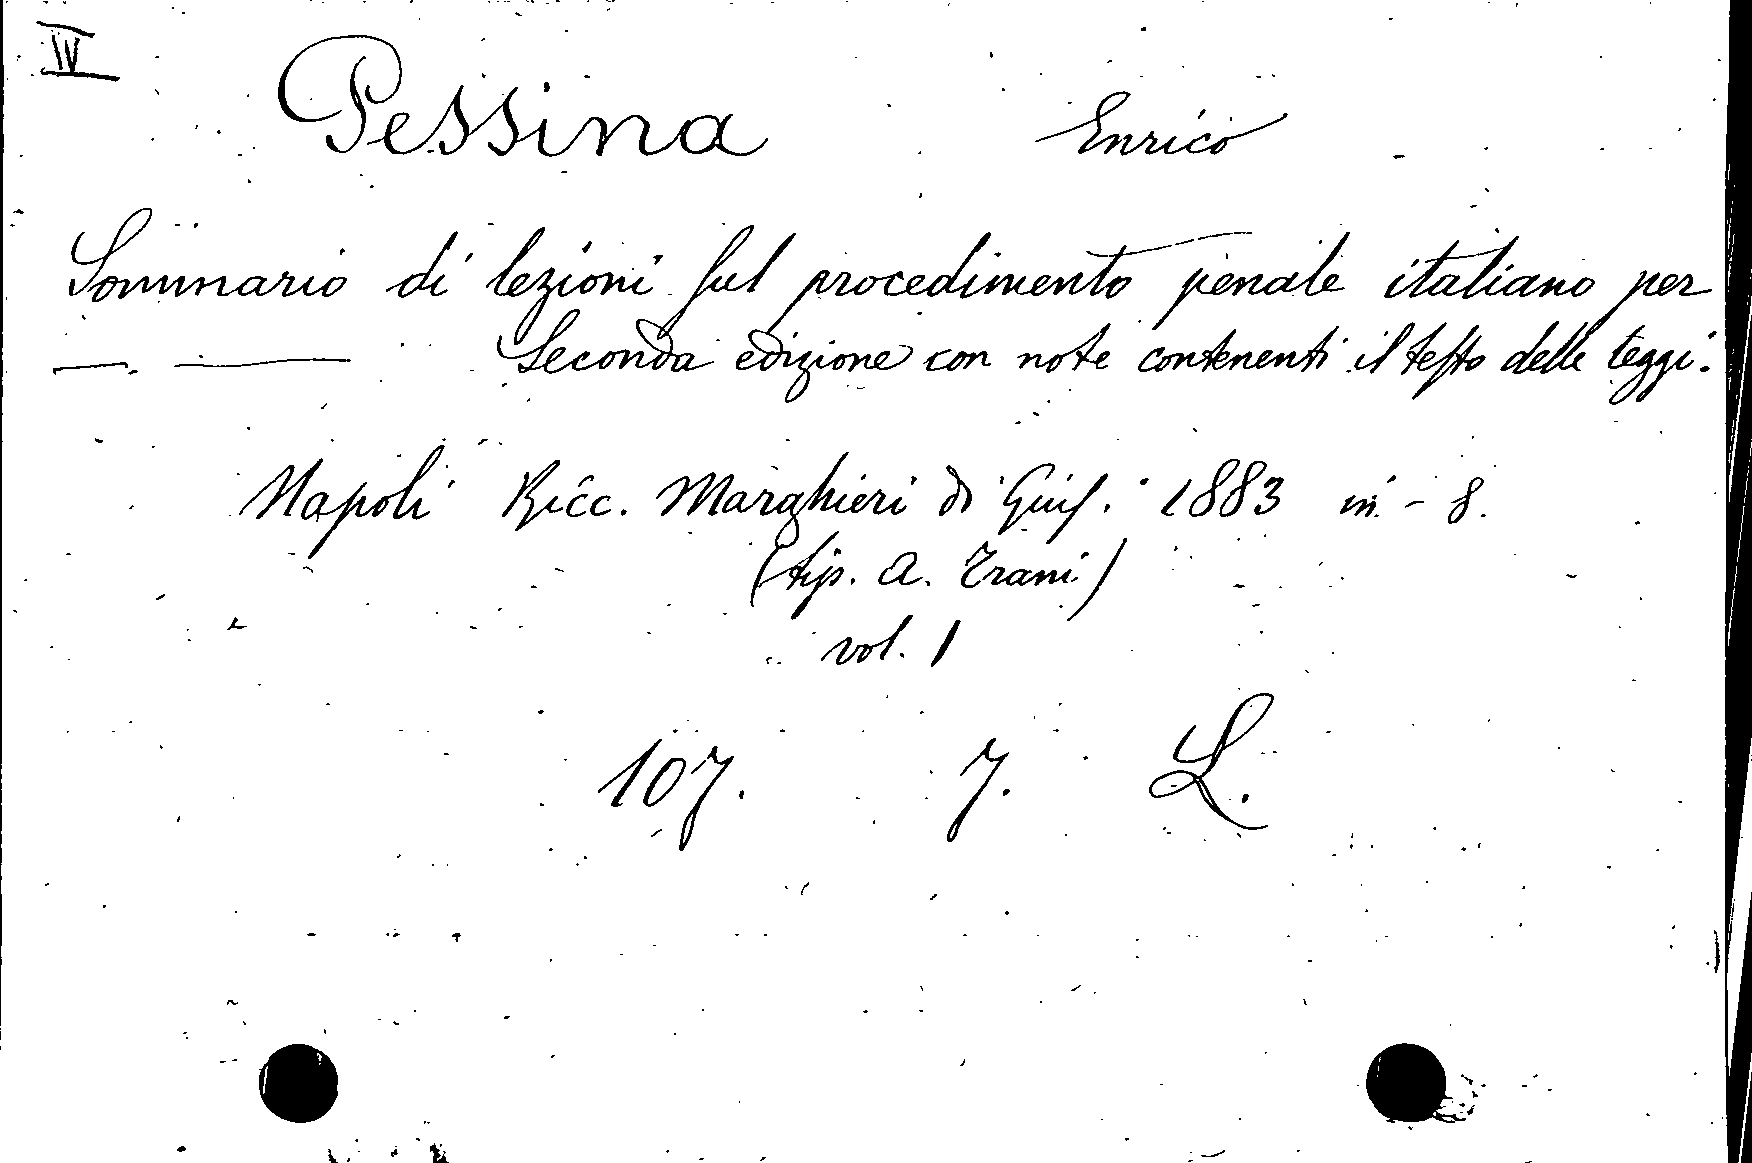 IV
Pessina Enrico
Sommario di lezioni sul procedimento penale italiano per
Seconda edizione con note contenenti il testo delle leggi.
Napoli Ricc. Marghieri di Gius. 1883 in - 8.
(tip. A. Trani)
vol. 1
107. 7. L.